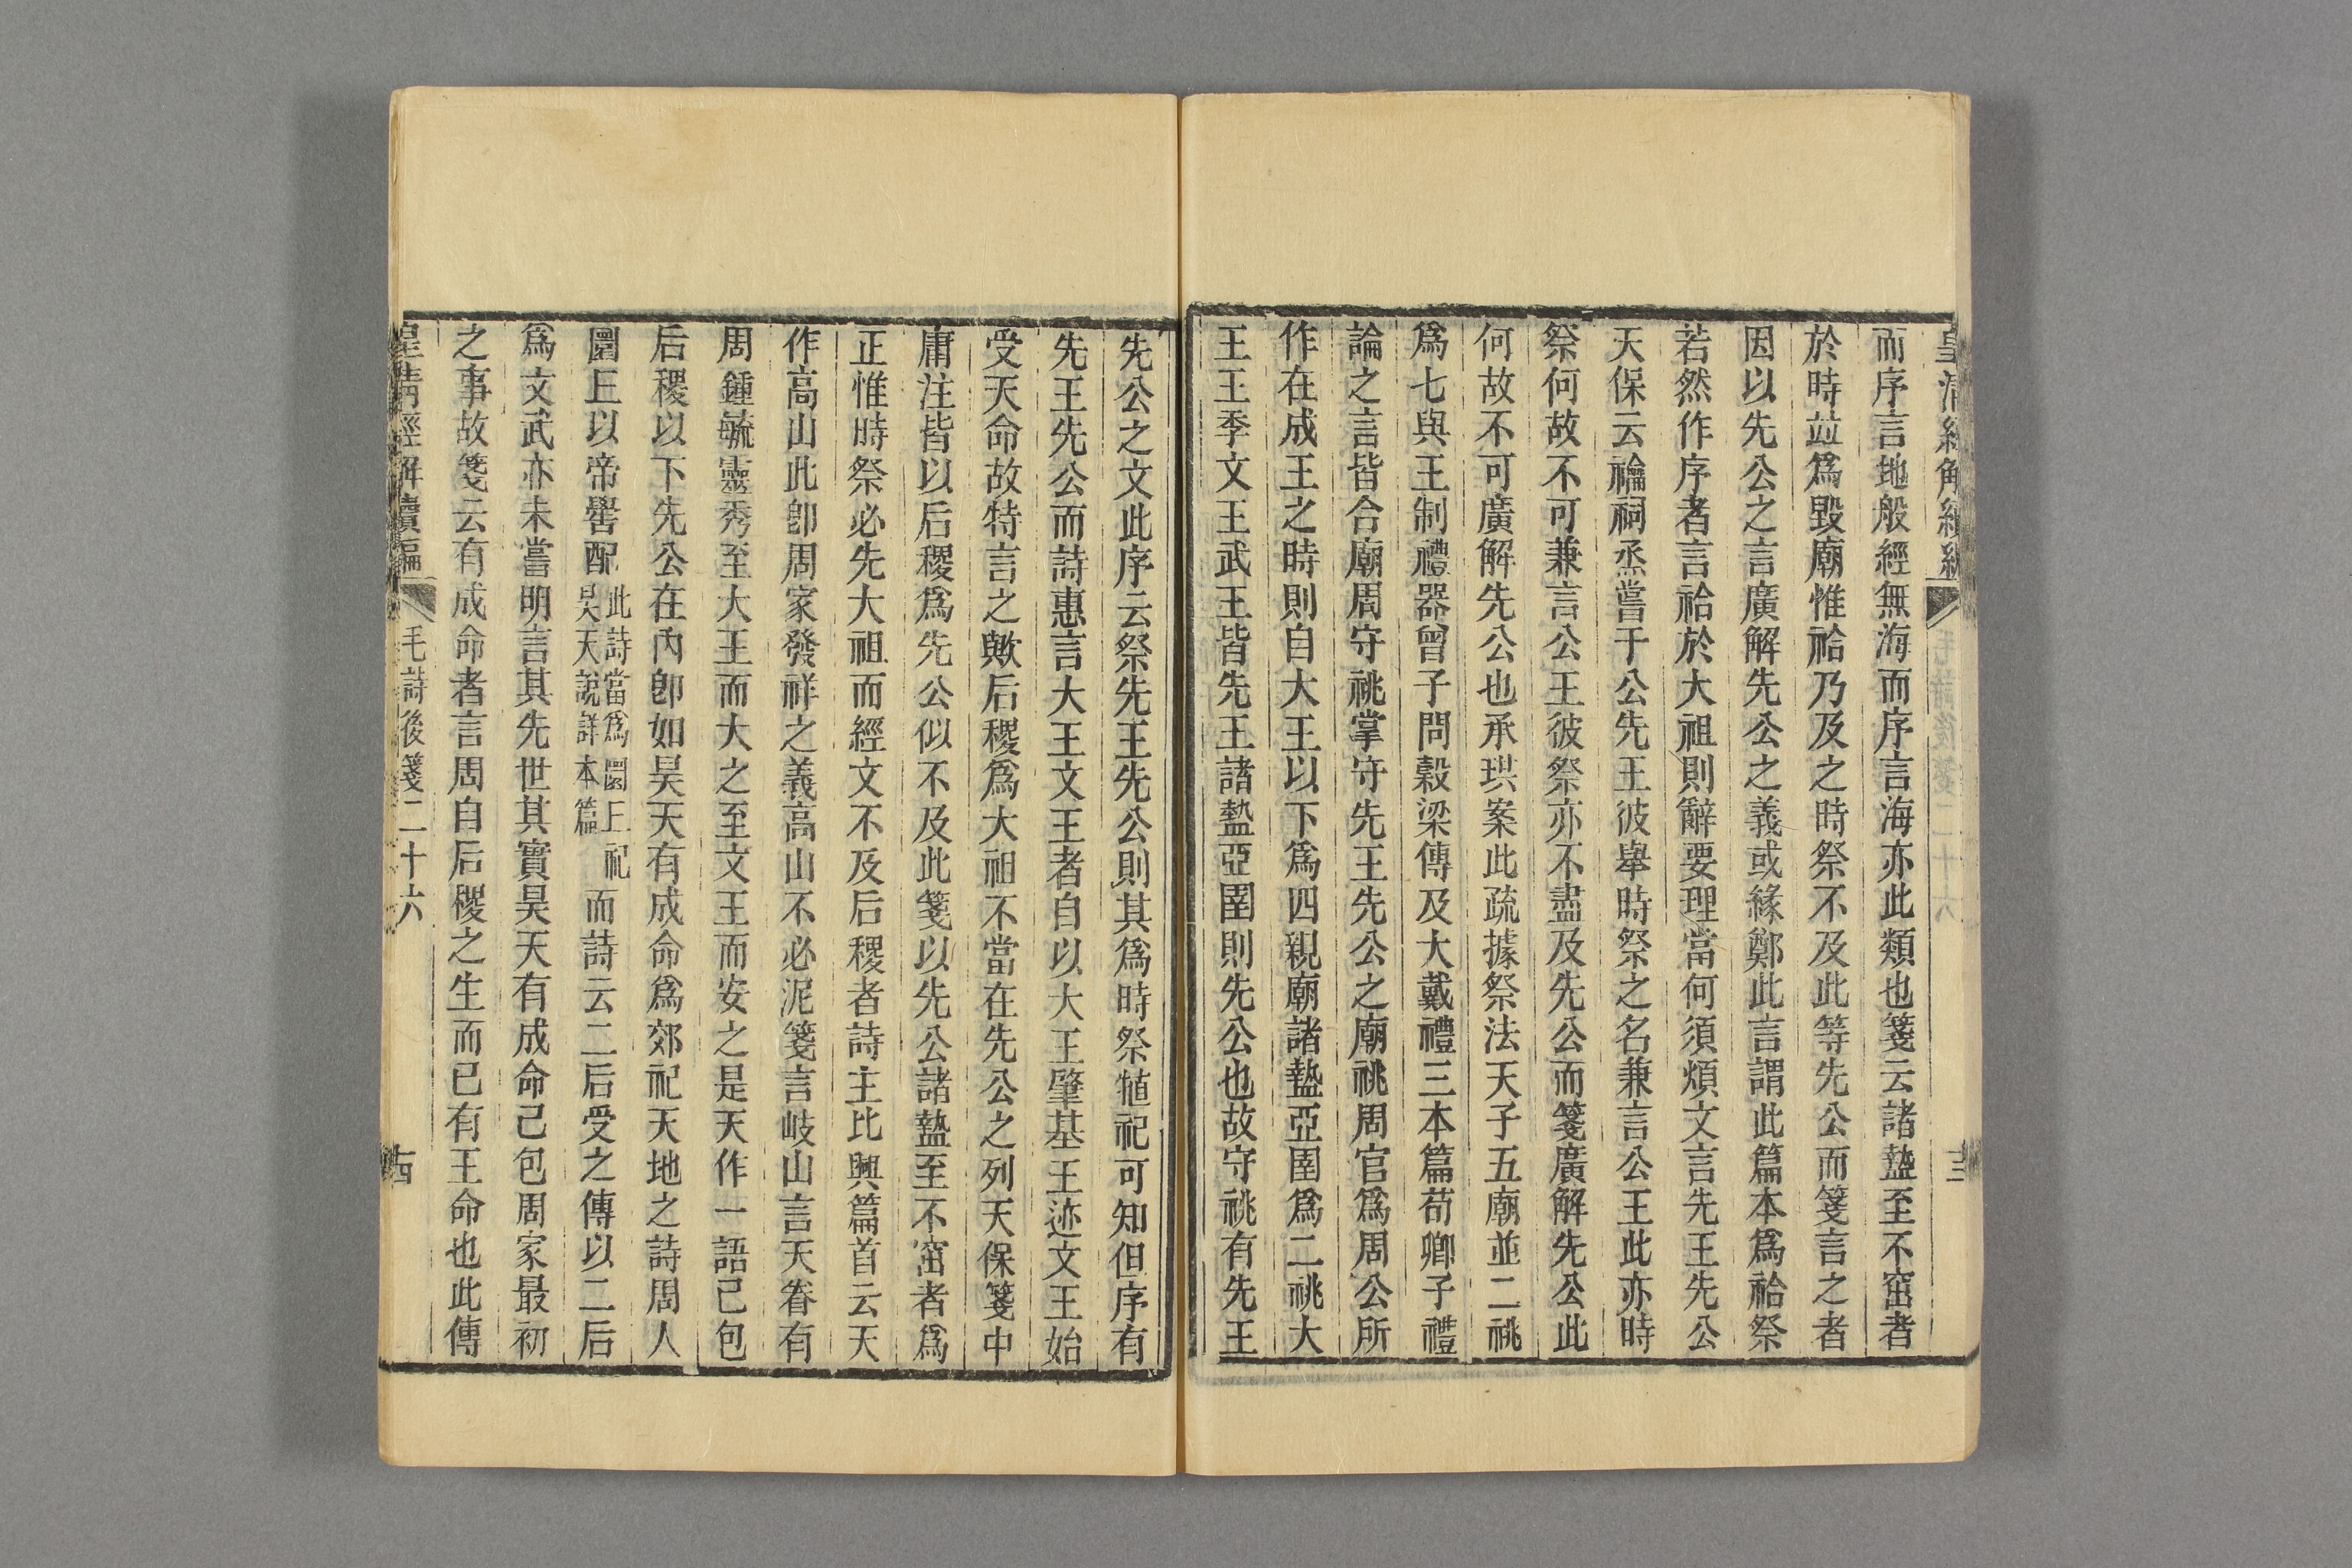 皇清經解續編
十三
而序言地般經無海而序言海亦此類也箋云諸盩至不窋者
於時竝爲毀廟惟祫乃及之時祭不及此等先公而箋言之者
因以先公之言廣解先公之義或緣鄭此言謂此篇本爲祫祭
若然作序者言祫於大祖則辭要理當何須煩文言先王先公
天保云禴祠烝嘗于公先王彼舉時祭之名兼言公王此亦時
祭何故不可兼言公王彼祭亦不盡及先公而箋廣解先公此
何故不可廣解先公也承珙案此疏據祭法天子五廟並二祧
爲七與王制禮器曾子問穀梁傳及大戴禮三本篇荀卿子禮
論之言皆合廟周守祧掌守先王先公之廟祧周官爲周公所
作在成王之時則自大王以下爲四親廟諸盩亞圉爲二祧大
王王季文王武王皆先王諸盩亞圉則先公也故守祧有先王
先公之文此序云祭先王先公則其爲時祭犆祀可知但序有
先王先公而詩惠言大王文王者自以大王肇基王迹文王始
受天命故特言之歟后稷爲大祖不當在先公之列天保箋中
庸注皆以后稷爲先公似不及此箋以先公諸盩至不窋者爲
正惟時祭必先大祖而經文不及后稷者詩主比興篇首云天
作高山此卽周家發祥之義高山不必泥箋言岐山言天眷有
周鍾毓靈秀至大王而大之至文王而安之是天作一語已包
后稷以下先公在內卽如昊天有成命爲郊祀天地之詩周人
圜丘以帝嚳配此詩當爲圜丘祀昊天說詳本篇而詩云二后受之傳以二后
爲文武亦未嘗明言其先世其實昊天有成命已包周家最初
之事故箋云有成命者言周自后稷之生而已有王命也此傳
皇清經解續編
毛詩後箋二十六
十四